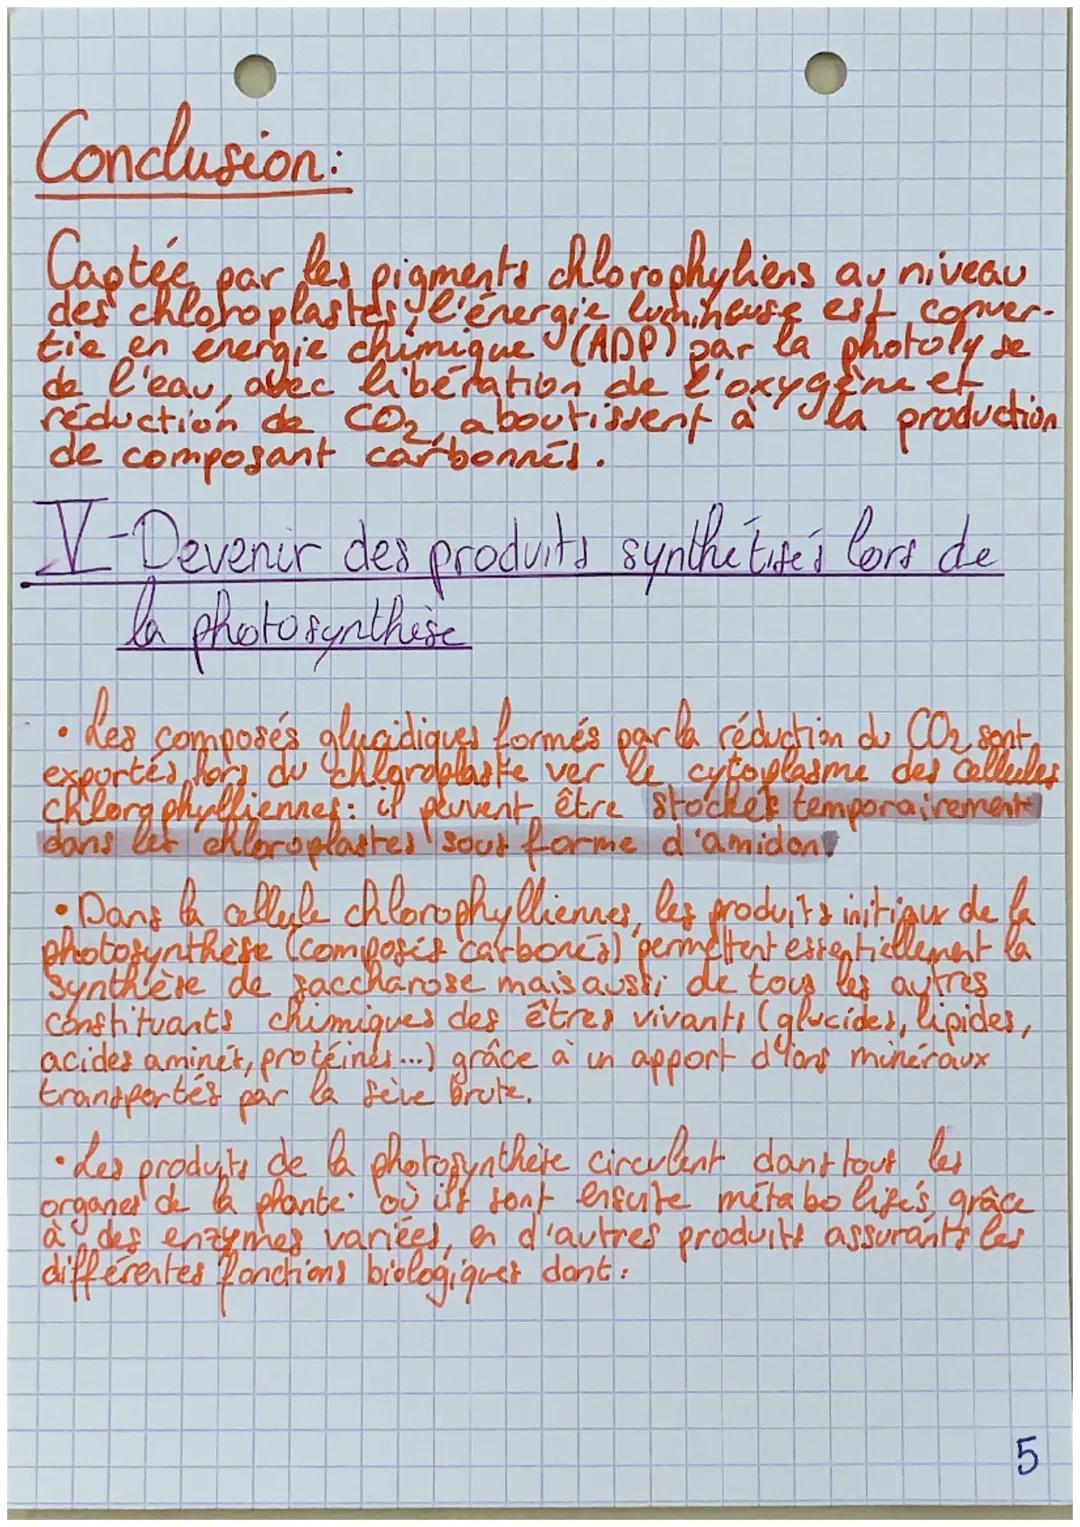 Conclusion:
Captée par les pigments chlorophyliens au niveau
des chloroplastes, l'énergie lumineuse est conver-
tie en énergie chimique (ADP) par la photolyse
de l'eau, avec libération de l'oxygène et
réduction de CO2, aboutissent à la production
de composant carbonnés.
V-Devenir des produits synthétisés lors de
la photosynthèse
• Les composés glucidiques formés par la réduction du CO2 sont
exportés hors du chloroplaste ver le cytoplasme des cellules
chlorophylliennes: il peuvent être stockés temporairement
dans les chloroplastes sous forme d'amidon.
• Dans la cellule chlorophylliennes, les produits initiaux de la
photosynthèse (composés carbonés) permettent essentiellement la
synthèse de saccharose mais aussi de tous les autres
constituants chimiques des êtres vivants (glucides, lipides,
acides aminés, protéines...) grâce à un apport d'ions minéraux
transportés par la sève brute.
• Les produits de la photosynthèse circulent dans tout les
organes de la plante où ils sont ensuite métabolisés, grâce
à des enzymes variées, en d'autres produits assurants les
différentes fonctions biologiques dont:
5